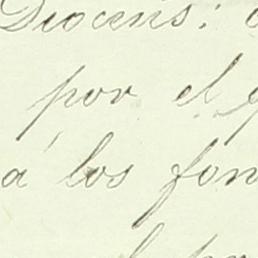 Diocesis;
por el
á los fon